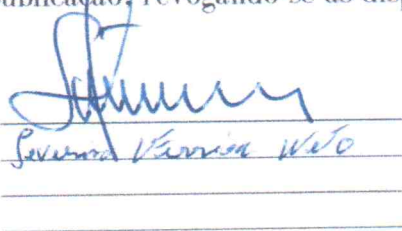 publicação, revogando-se as disp
Severino Ferreira Neto